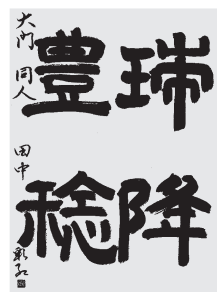 瑞降
豊稔
大門 同人 田中 彩紅